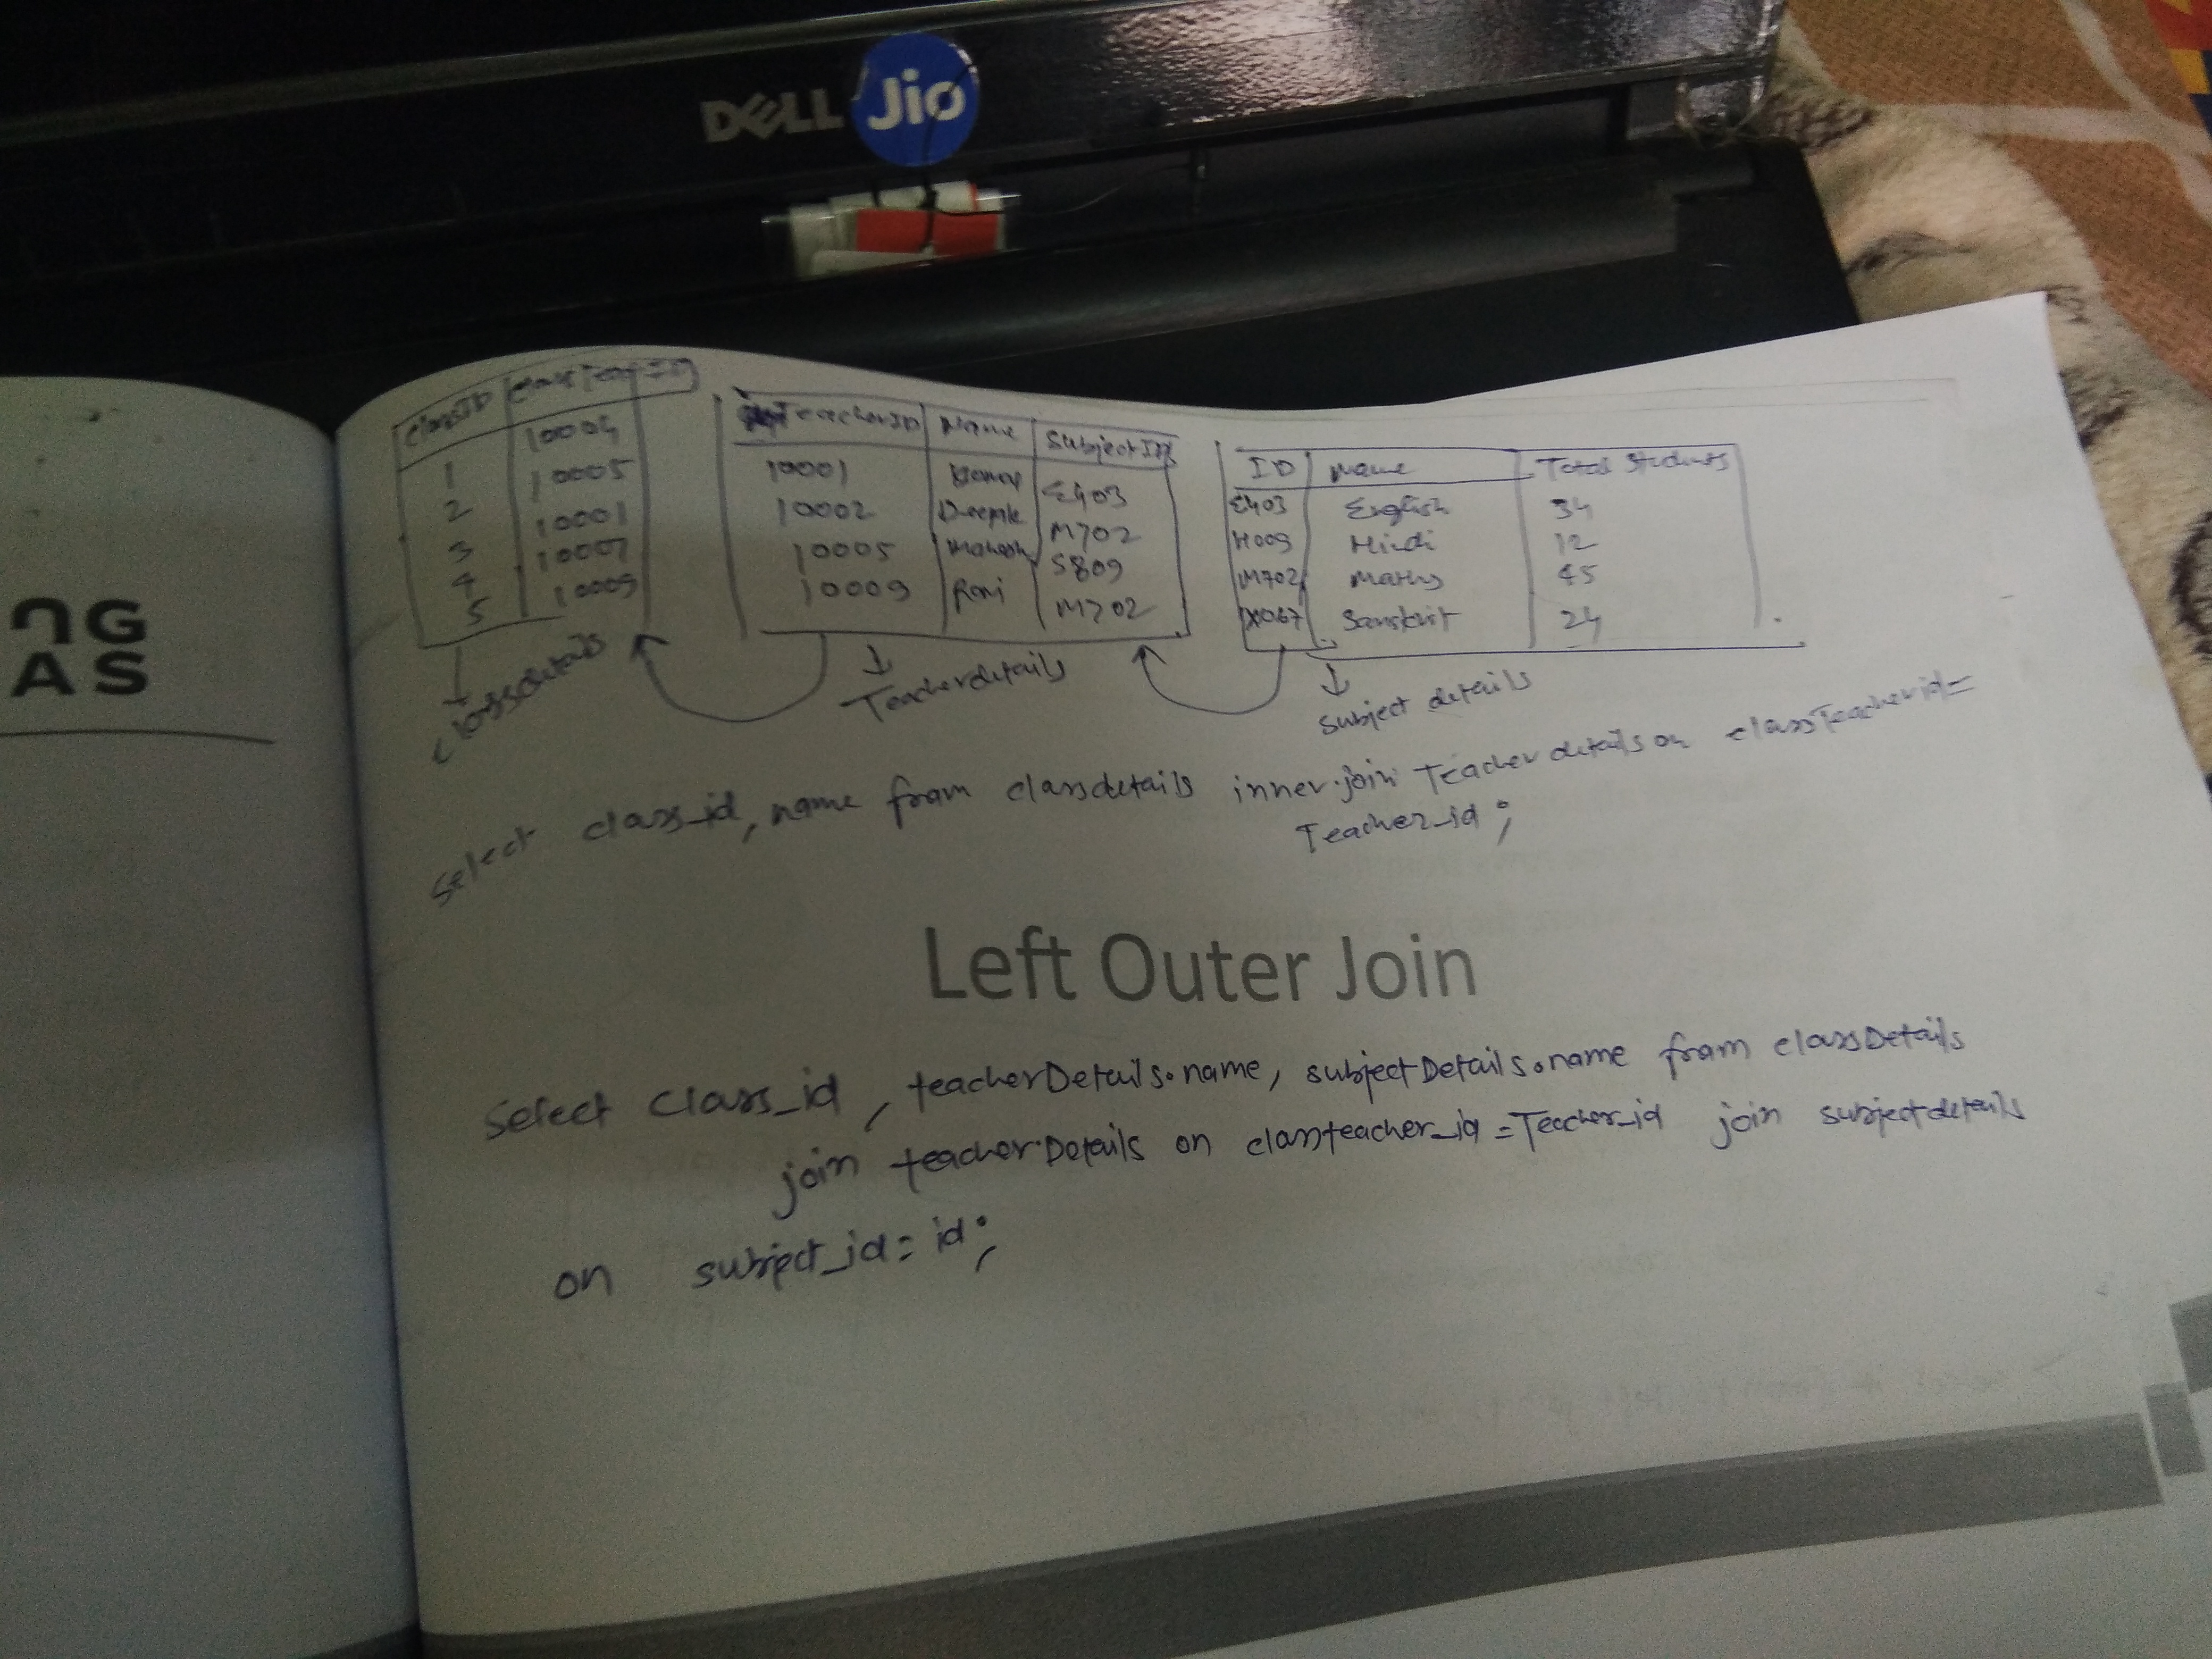 DELL Jio
ClassID
1 10004
2 10005
3 10001
4 10007
5 10009
classdetails
TeacherID Name SubjectID
10001 E403
10002 Deepak M702
10005 Mahesh S809
10009 Ravi M702
Teacherdetails
ID Name Total Students
E403 English 34
H009 Hindi 12
M702 Maths 45
Sanskrit 24
subject details
Select class_id, name from classdetails inner join Teacher details on classTeacherid=
Teacher_id;
NG
AS
Left Outer Join
Select Class_id, teacherDetails.name, subjectDetails.name from classDetails
join teacherDetails on classteacher_id=Teacher_id join subjectdetails
on subject_id= id;